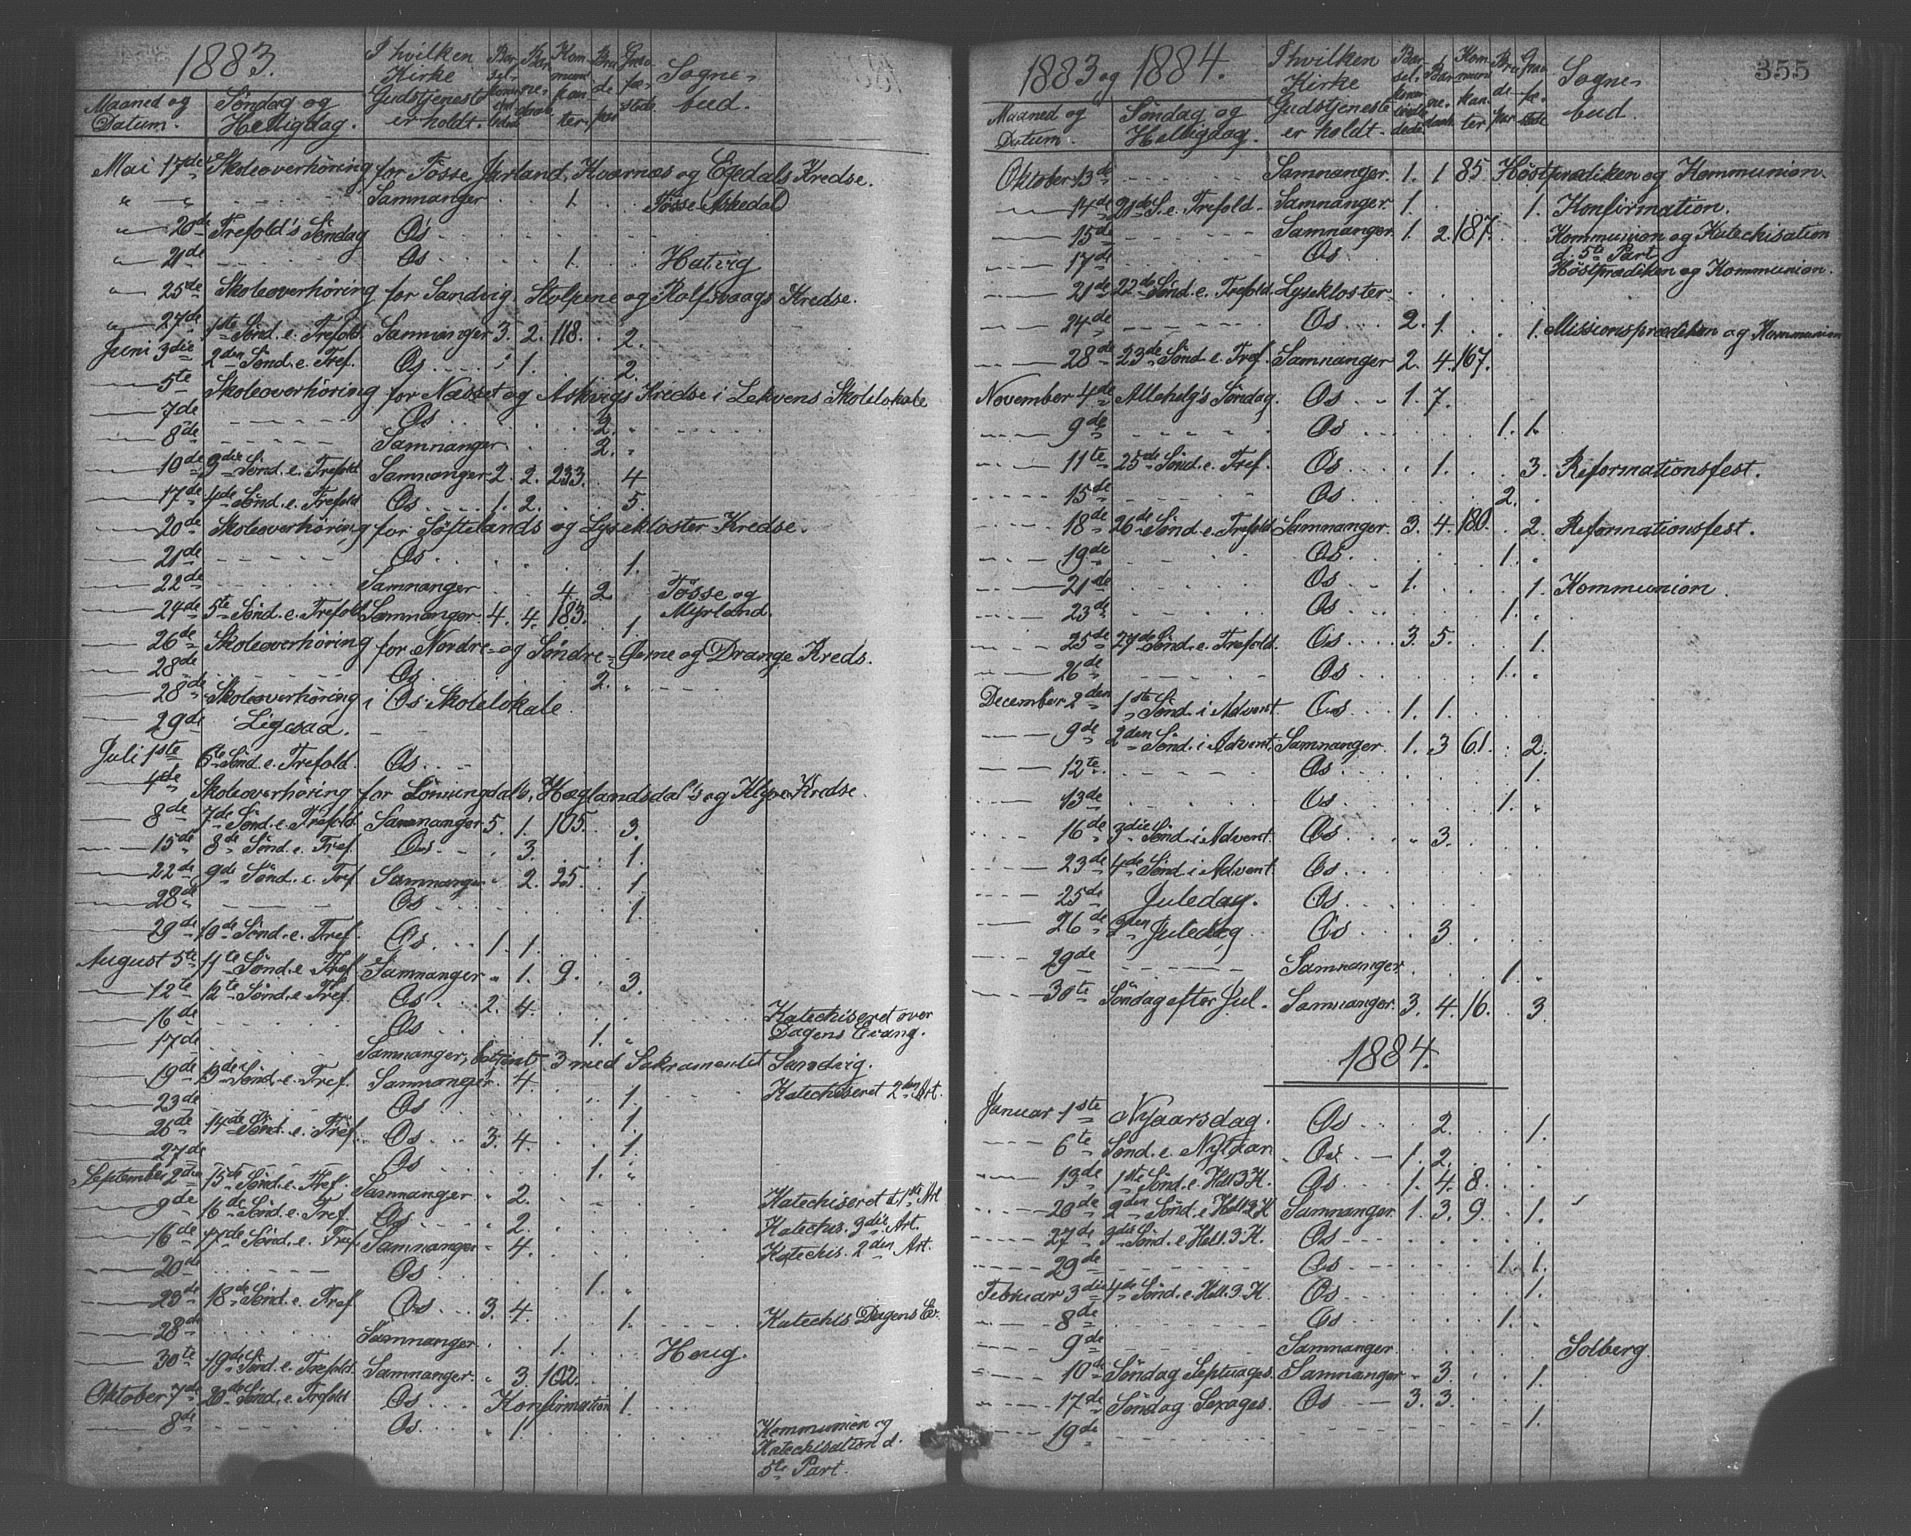 1883.
Maaned og Datum. Søndag og Helligdag. I hvilken Kirke Gudstjeneste er holdt. Kommunikanter. Sognebud.
Mai 17de Skoleoverhøring for Tøsse, Jarland, Kvarnæs og Egedals Kredse.
" — " Samnanger 1. Tøsse (Askedal)
" 20de Trefold's Søndag Os
" 21de Os 1. Hatvig
" 25de Skoleoverhøring for Sandvig, Stolpene og Rolfsvaags Kredse.
" 27de 1ste Sønd. e. Trefold. Samnanger 3. 2. 118. 2.
Juni 3die 2den Sønd. e. Tref. Os 1. 2.
5te Skoleoverhøring for Næsset og Askvigs Kredse i Lekvens Skolelokale
7de Os 2.
8de Samnanger 2.
10de 3die Sønd. e. Trefold Samnanger 2. 2. 233. 4
17de 4de Sønd. e. Trefold Os 1. 2. 5.
20de Skoleoverhøring for Søftelands og Lysekloster Kredse.
21de Os 1.
22de Samnanger 4. 2 Tøsse og
24de 5te Sønd. e. Trefold Samnanger 4. 4. 183. 1. Myrland.
26de Skoleoverhøring for Nordre- og Søndre-Øerne og Drange Kreds.
28de Os 2.
28de Skoleoverhøring i Os Skolelokale
29de Ligesaa.
Juli 1ste 6te Sønd. e. Trefold. Os
4de Skoleoverhøring for Lønningdals, Hæglandsdal's og Klyve Kredse.
8de 7de Sønd. e. Trefold. Samnanger 5. 1. 105. 3.
15de 8de Sønd. e. Tref. Os 3. 1.
22de 9de Sønd. e. Tref. Samnanger 2. 25. 1.
28de Os 1.
29de 10de Sønd. e. Tref. Os 1. 1.
August 5te 11te Sønd. e. Tref. Samnanger 1. 9. 3.
12te 12te Sønd. e. Tref. Os 2. 4. Katechiseret over Dagens Evang.
16de Os 1.
17de Samnanger, betjent 3 med Sakramentet Sandvig.
19de 13de Sønd. e. Tref. Samnanger 4. Katechiseret 2den Art.
23de Os 1.
26de 14de Sønd. e. Tref. Os 3. 4. 1.
27de Os 1.
September 2den 15de Sønd. e. Tref. Samnanger 2. Katechiseret d. 1ste Art
9de 16de Sønd. e. Tref. Os 2. Katechis. 3die Art.
16de 17de Sønd. e. Tref. Samnanger 4. Katechis. 2den Art.
20de Os 1.
23de 18de Sønd. e. Tref. Os 3. 4. 1. Katechis Dagens Ev.
28de Samnanger 1. Houg.
30te 19de Sønd. e. Trefold. Samnanger 3 102.
Oktober 7de 20de Sønd. e. Trefold Os Konfirmation 1.
8de Os 1. Kommunion og
Katechisation d.
5te Part.
355
1883 og 1884.
Maaned og Datum. Søndag og Helligdag. I hvilken Kirke Gudstjeneste er holdt. Kommunikanter. Sognebud.
Oktober 13de Samnanger. 1. 1 85 Høstprædiken og Kommunion.
14de 21de S. e. Trefold. Samnanger. 1. 1. Konfirmation.
15de Samnanger. 1. 2. 187. Kommunion og Katechisation d. 5te Part
17de Os Høstprædiken og Kommunion.
21de 22de Sønd. e. Trefold. Lysekloster
24de Os 2. 1. 1. Missionsprædiken og Kommunion
28de 23de Sønd. e. Tref. Samnanger 2. 4. 167.
November 4de Allehelg's Søndag. Os 1. 7.
9de Os 1. 1.
11te 25de Sønd. e. Tref. Os 1. 3. Reformationsfest.
15de Os 2.
18de 26de Sønd. e. Trefold Samnanger. 3. 4. 180. 2. Reformationsfest.
19de Os 1.
21de Os 1. 1. Kommunion
23de Os 1.
25de 27de Sønd. e. Trefold. Os 3. 5. 1.
26de Os 1.
December 2den 1ste Sønd. i Advent Os 1. 1.
9de 2den Sønd. i Advent. Samnanger. 1. 3 61. 2.
12te Os 1.
13de Os 1.
16de 3die Sønd. i Advent. Os 3.
23de 4de Sønd. i Advent. Os
25de Juledag. Os
26de 2den Juledag Os 3.
29de Samnanger 1.
30te Søndag efter Jul. Samnanger 3. 4. 16. 3.
1884.
Januar 1ste Nyaarsdag. Os 2. 1.
6te Sønd. e. Nytaar Os 1. 2.
13de 1ste Sønd. e. Hell. 3 K. Os 1. 4. 8.
20de 2den Sønd. e. Hell. 3 K Samnanger 1. 3. 9. 1.
27de 3die Sønd. e. Hell. 3 K. Os
29de Os 1. 1.
Februar 3die 4de Sønd. e. Hell. 3 K. Os 1.
8de Os 1.
9de Samnanger Solberg
10de Søndag Septuages. Samnanger 3. 1.
17de Søndag Sexages. Os 3. 3. 1.
19de